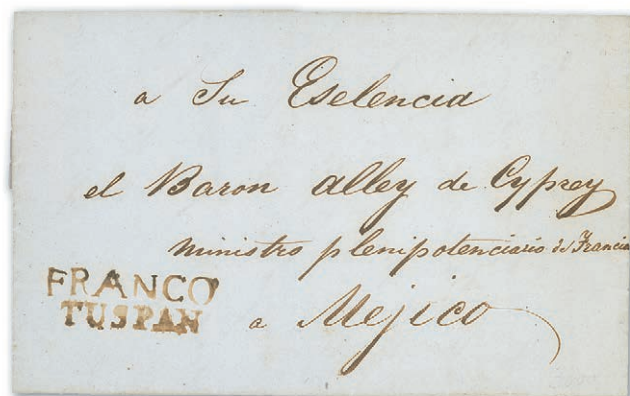 a Su Eselencia
el Baron alley de Cyprey
ministro plenipotenciario de Francia
FRANCO
TUSPAN
a Mejico